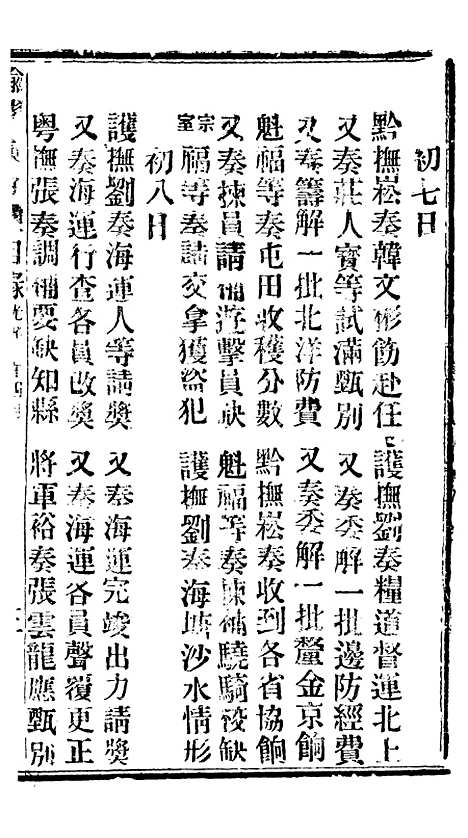 初七日
黔撫崧奏韓文彬飭赴任 護撫劉奏糧道督運北上
又奏莊人寶等試滿甄別 又奏委解一批邊防經費
又奏籌解一批北洋防費 又奏委解一批釐金京餉
魁福等奏屯田收穫分數 黔撫崧奏收到各省協餉
又奏揀員請補遊擊員缺 魁福等奏揀補驍騎校缺
宗室福等奏請交拿獲盜犯 護撫劉奏海塘沙水情形
初八日
護撫劉奏海運人等請獎 又奏海運完竣出力請獎
又奏海運行查各員改獎 又奏海運各員聲覆更正
粵撫張奏調補要缺知縣 將軍裕奏張雲龍應甄別
諭摺彙存 目錄 光緒